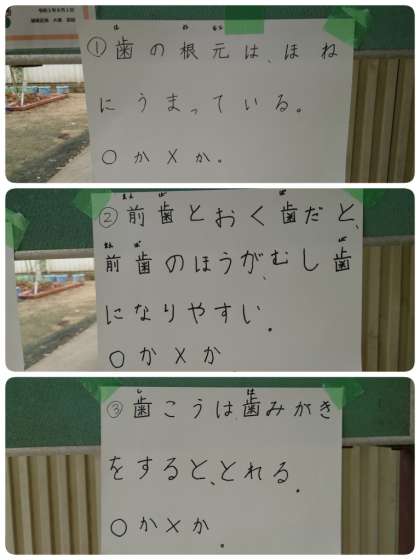 ①歯の根元は、ほね
にうまっている。
○か×か。
②前歯とおく歯だと、
前歯のほうが、むし歯
になりやすい。
○か×か
③歯こうは歯みがき
をすると、とれる。
○か×か